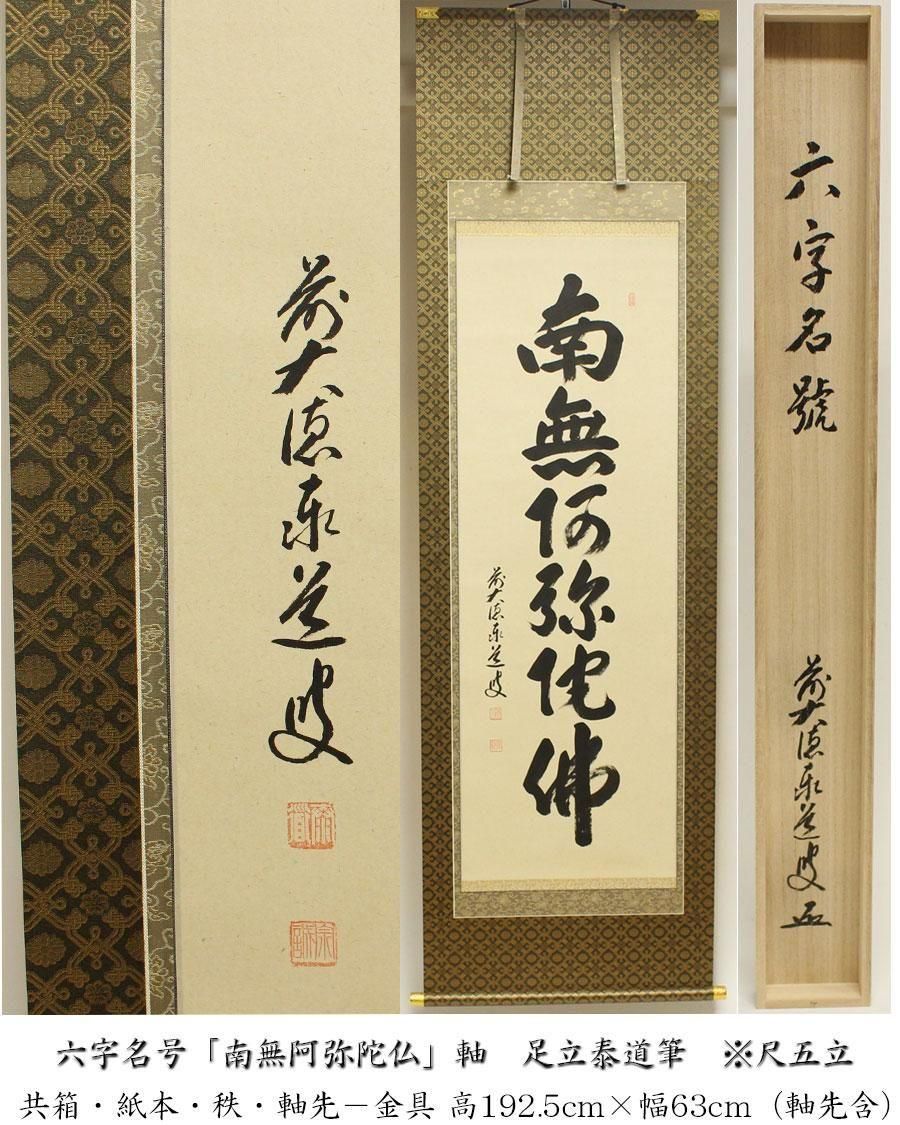 前大徳泰道叟
南無阿弥陀佛
前大徳泰道叟
六字名號
前大徳泰道叟
六字名号「南無阿弥陀仏」軸　足立泰道筆　※尺五立
共箱・紙本・秩・軸先－金具 高192.5cm×幅63cm（軸先含）